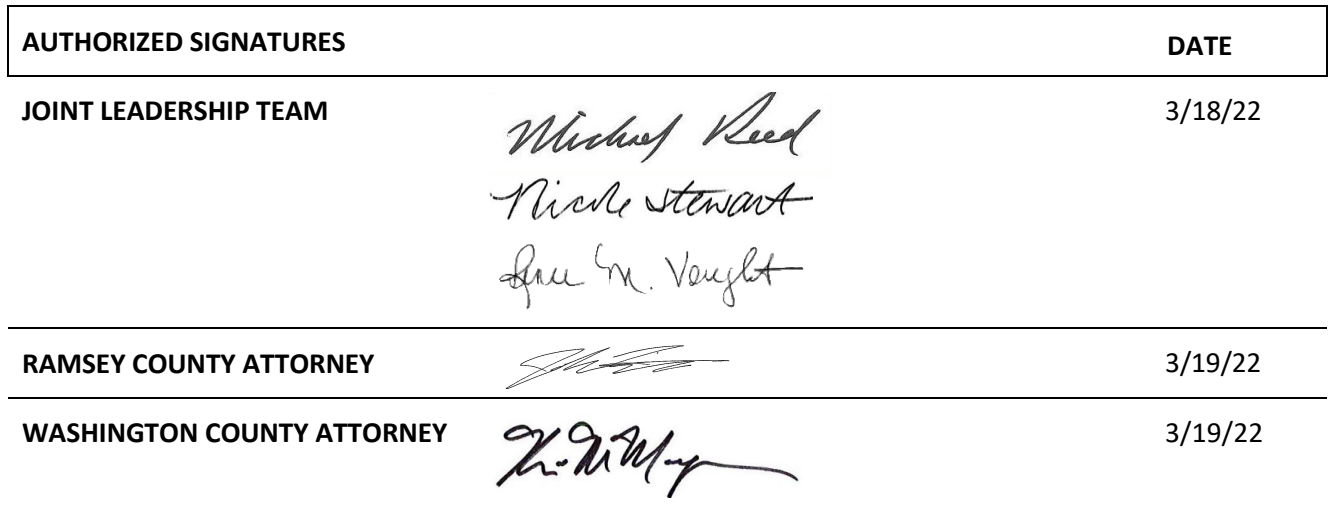 AUTHORIZED SIGNATURES DATE
JOINT LEADERSHIP TEAM Michael Reed 3/18/22
Nicole Stewart
M. Vaught
RAMSEY COUNTY ATTORNEY 3/19/22
WASHINGTON COUNTY ATTORNEY 3/19/22